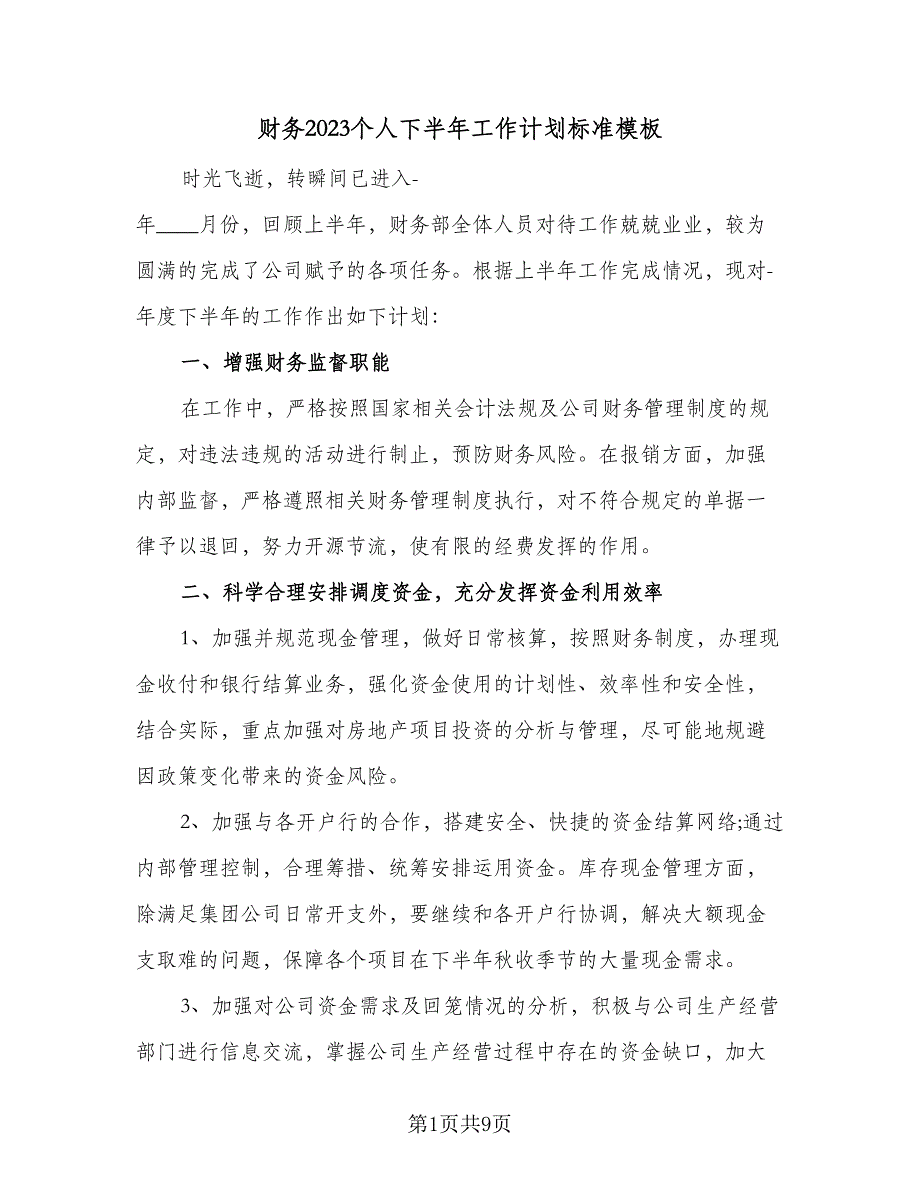 财务2023个人下半年工作计划标准模板
时光飞逝，转瞬间已进入-
年____月份，回顾上半年，财务部全体人员对待工作兢兢业业，较为
圆满的完成了公司赋予的各项任务。根据上半年工作完成情况，现对-
年度下半年的工作作出如下计划：
一、增强财务监督职能
在工作中，严格按照国家相关会计法规及公司财务管理制度的规
定，对违法违规的活动进行制止，预防财务风险。在报销方面，加强
内部监督，严格遵照相关财务管理制度执行，对不符合规定的单据一
律予以退回，努力开源节流，使有限的经费发挥的作用。
二、科学合理安排调度资金，充分发挥资金利用效率
1、加强并规范现金管理，做好日常核算，按照财务制度，办理现
金收付和银行结算业务，强化资金使用的计划性、效率性和安全性，
结合实际，重点加强对房地产项目投资的分析与管理，尽可能地规避
因政策变化带来的资金风险。
2、加强与各开户行的合作，搭建安全、快捷的资金结算网络;通过
内部管理控制，合理筹措、统筹安排运用资金。库存现金管理方面，
除满足集团公司日常开支外，要继续和各开户行协调，解决大额现金
支取难的问题，保障各个项目在下半年秋收季节的大量现金需求。
3、加强对公司资金需求及回笼情况的分析，积极与公司生产经营
部门进行信息交流，掌握公司生产经营过程中存在的资金缺口，加大
第1页共9页